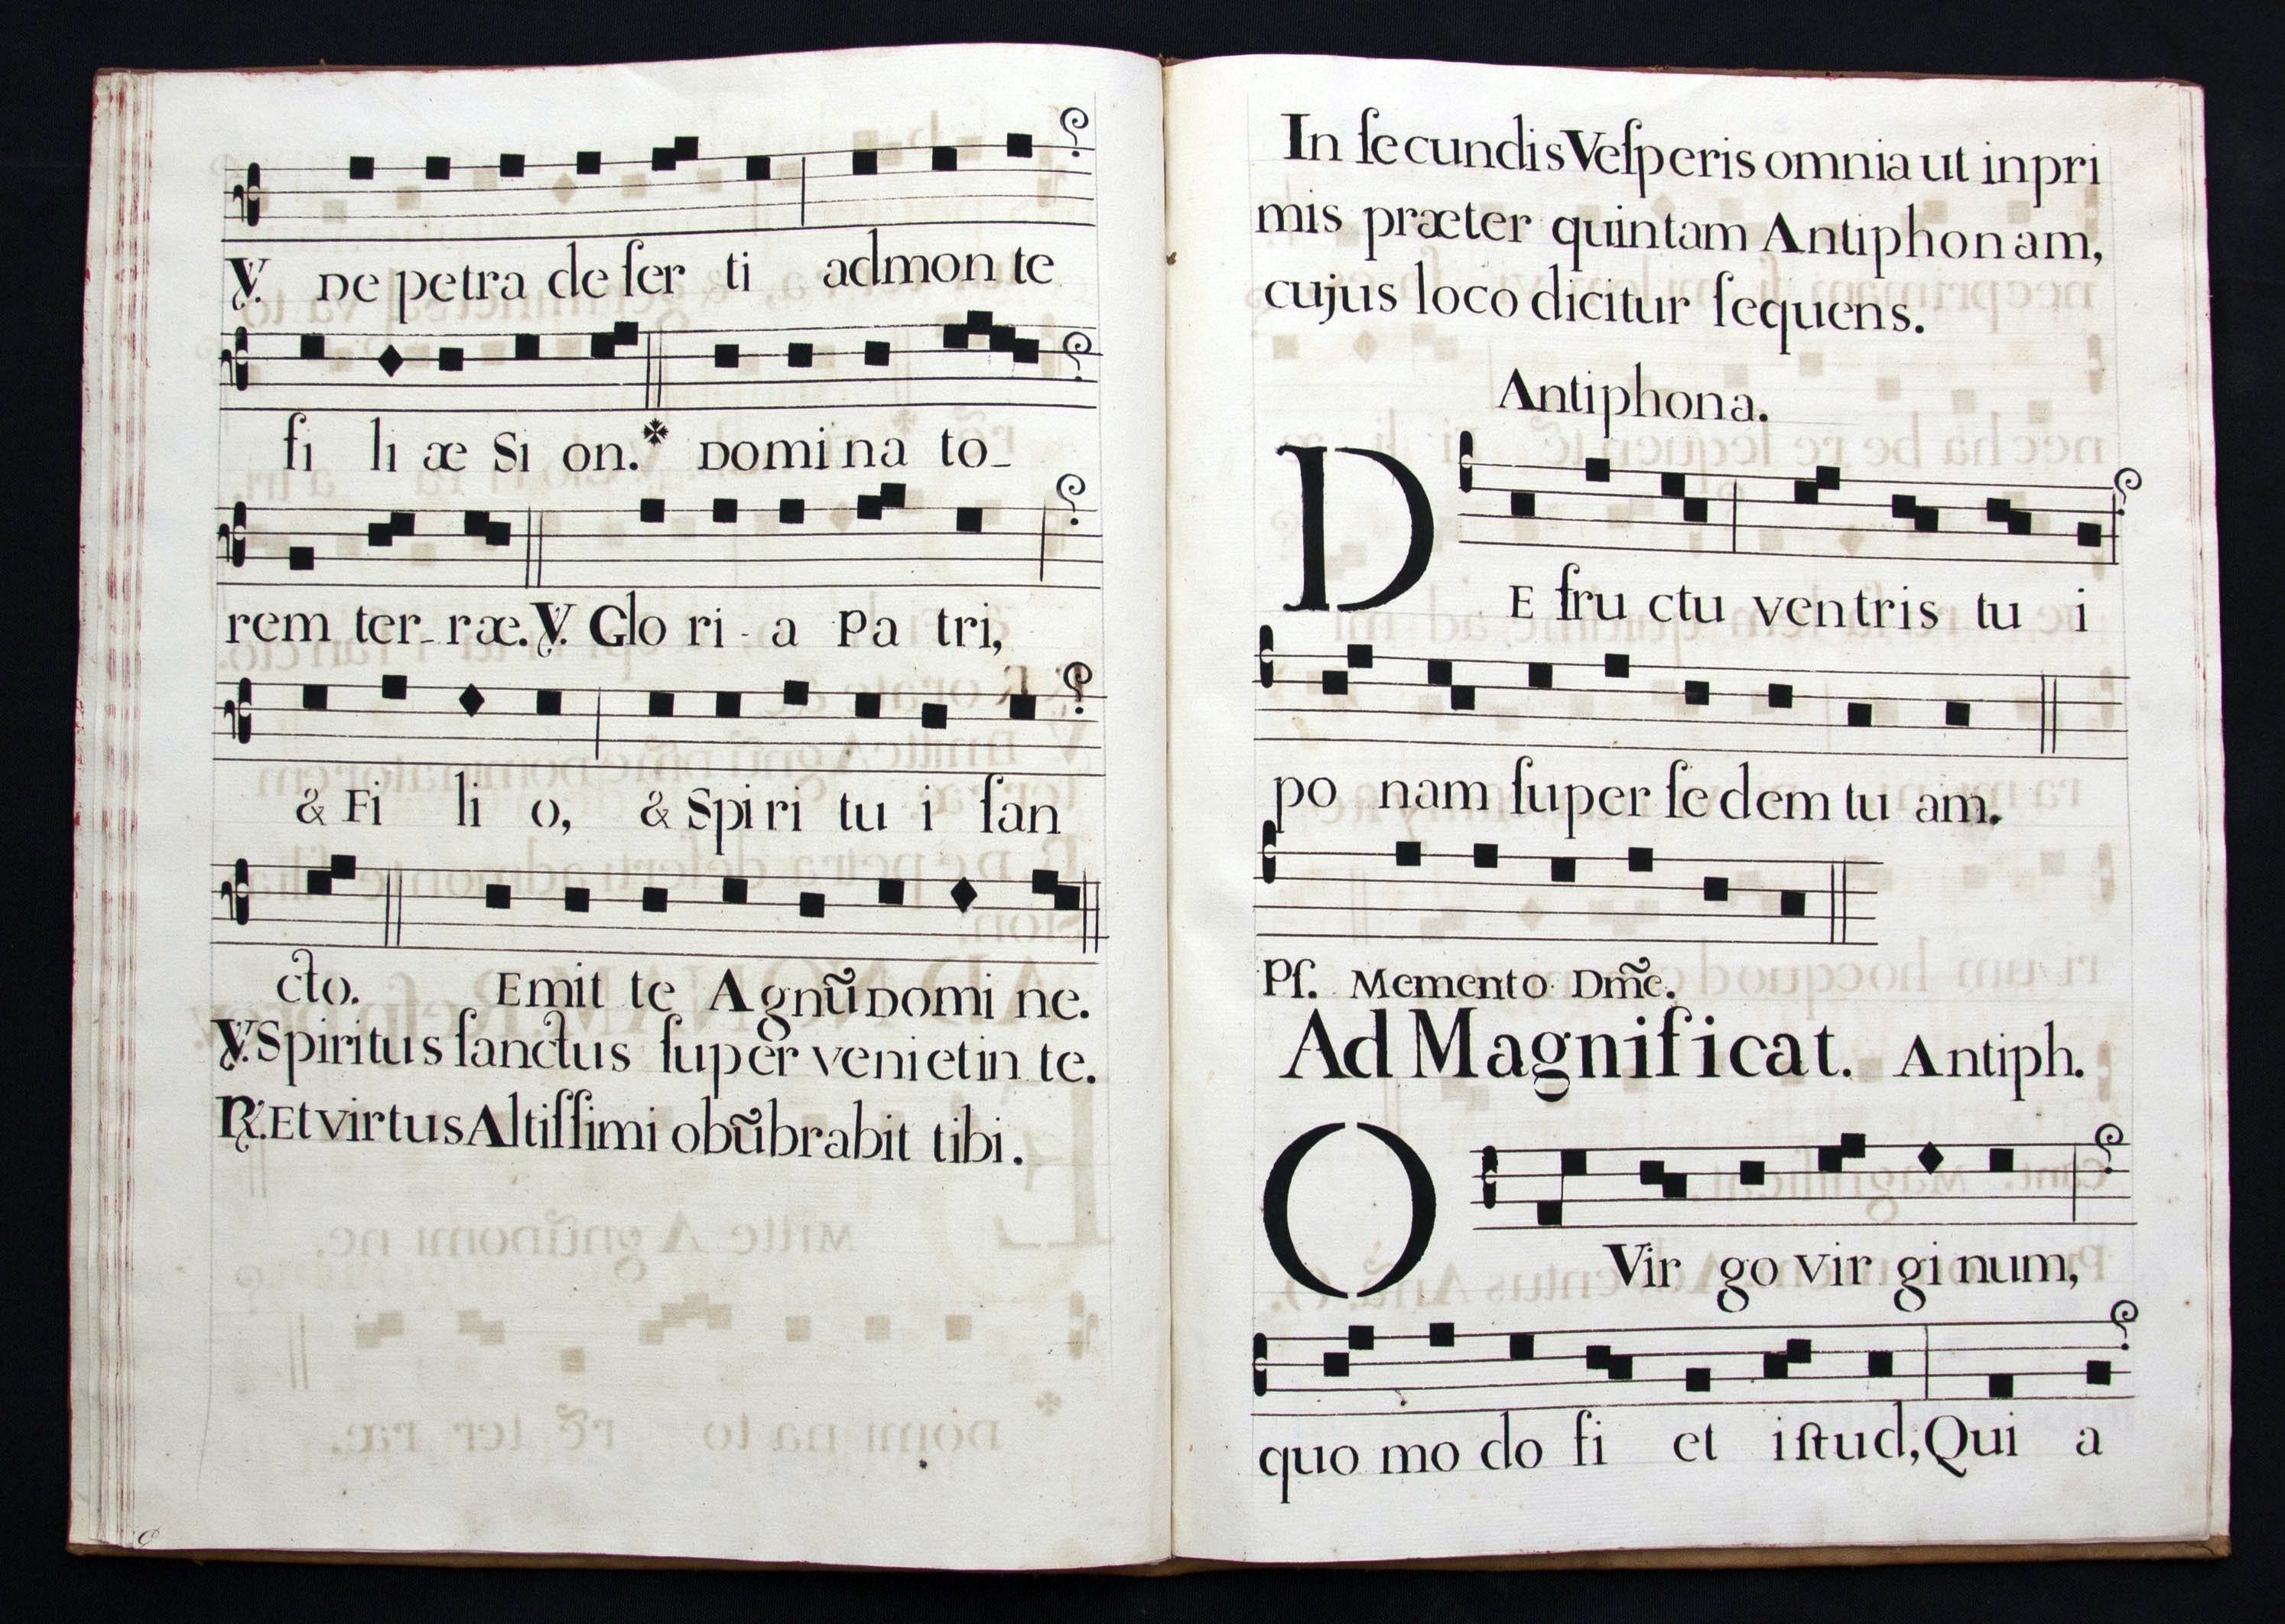 ℣. De petra de ſer ti ad mon te
fi li æ Si on.* Domi na to_
rem ter_ ræ. ℣. Glo ri - a Pa tri,
& Fi li o, & Spi ri tu i ſan
cto. Emit te Agnũ Domi ne.
℣. Spiritus ſanctus ſuper veniet in te.
℟. Et virtus Altiſſimi obũbrabit tibi.
In ſecundis Veſperis omnia ut in pri
mis præter quintam Antiphonam,
cujus loco dicitur ſequens.
Antiphona.
DE fru ctu ventris tu i
po nam ſuper ſe dem tu am.
Pſ. Memento Dm̃e.
Ad Magnificat. Antiph.
O Vir go vir gi num,
quo mo do fi et iſtud, Qui a